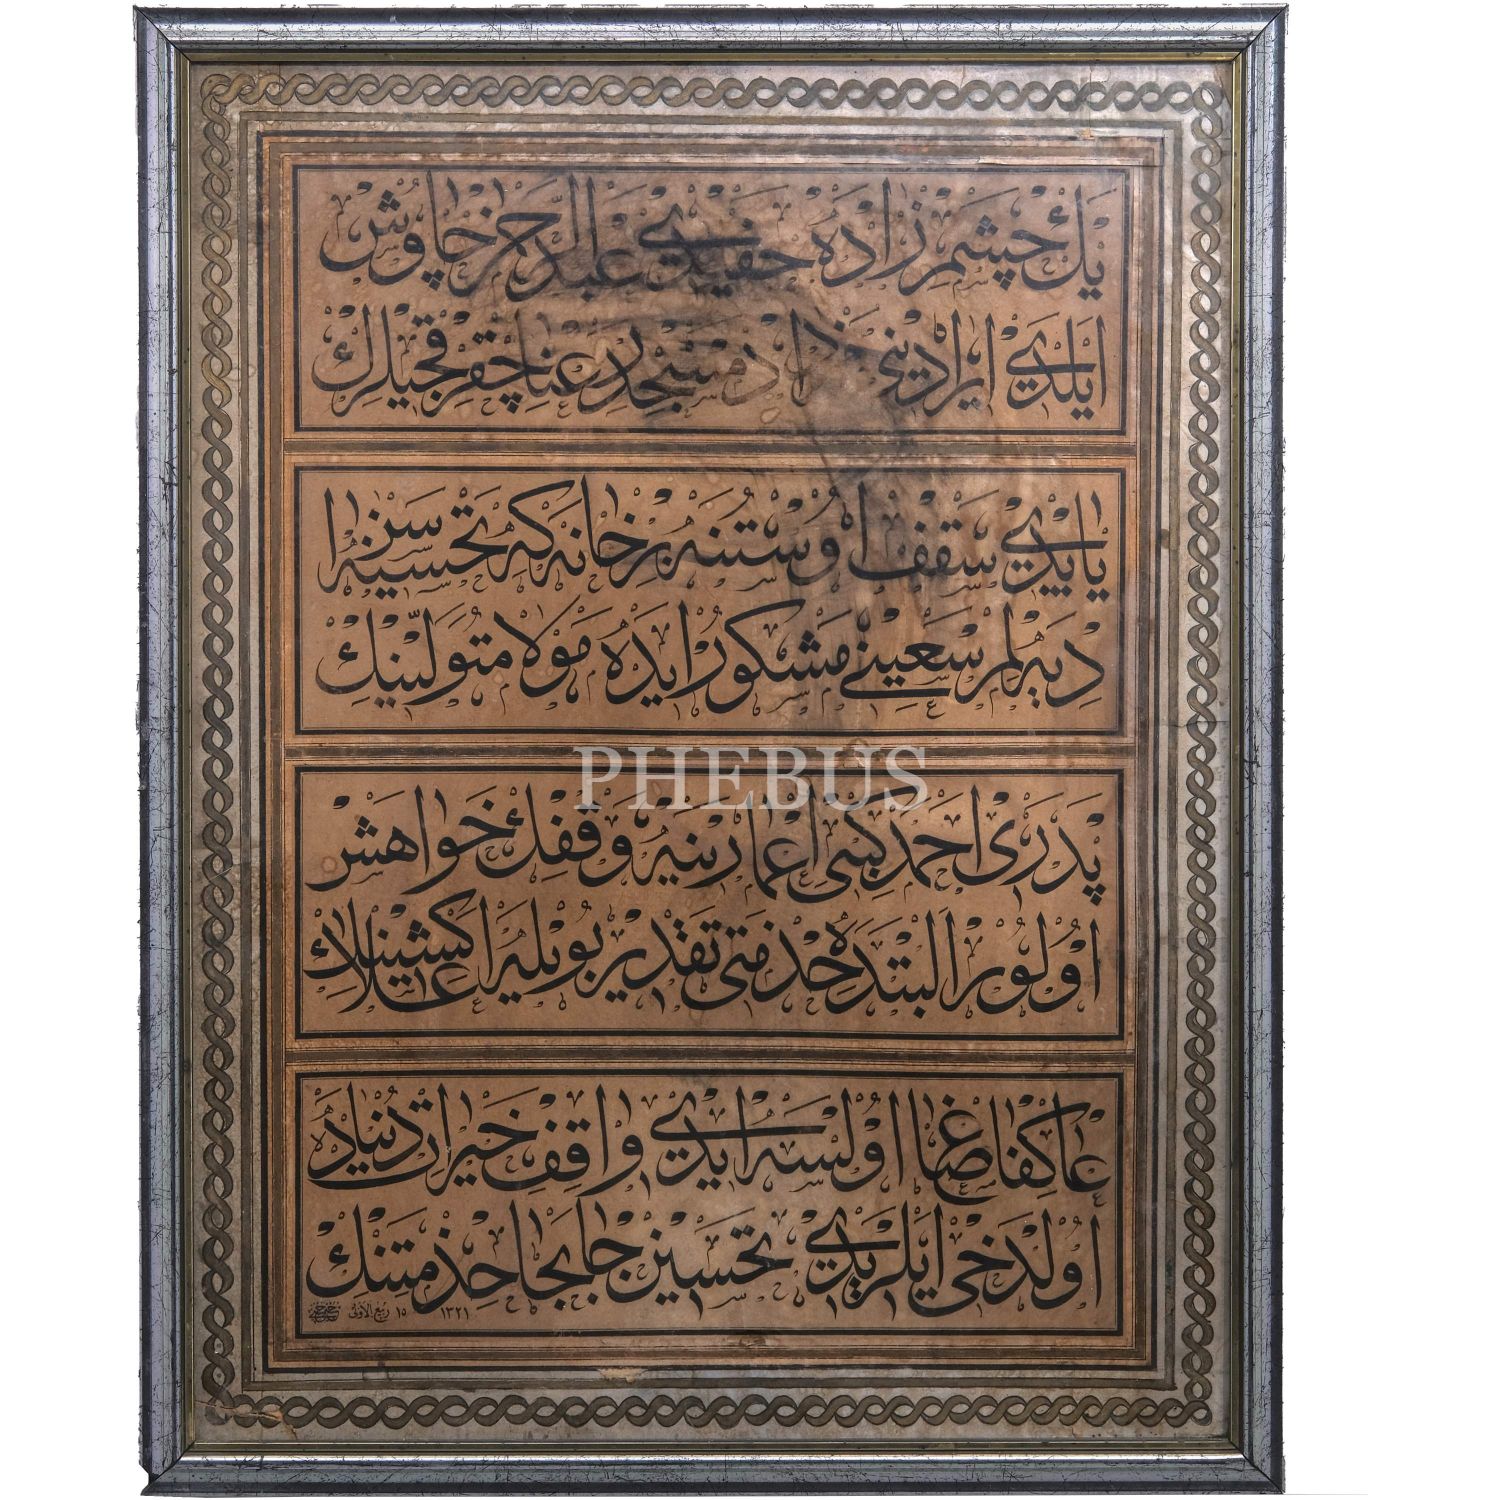 يك چشم زاده حفيدى عبد الرحمن چاوش
ايلدى ايرادينى مسجد رعنا چقرقجيلرك
ياپدى سقف اوستنه بر خانه كه تحسين سزا
ديه لم سعينى مشكور ايده مولا متولينك
PHEBUS
پدرى احمد كبى اعمارينه وقفك خواهش
اولور البته ده خدمتى تقدير بويله
عاكف اغا اولسه ايدى واقف خيرات دنياده
اولدخى ايلر ايدى تحسين جابجا خدمتنك
١٥ ربيع الاول ١٣٢١